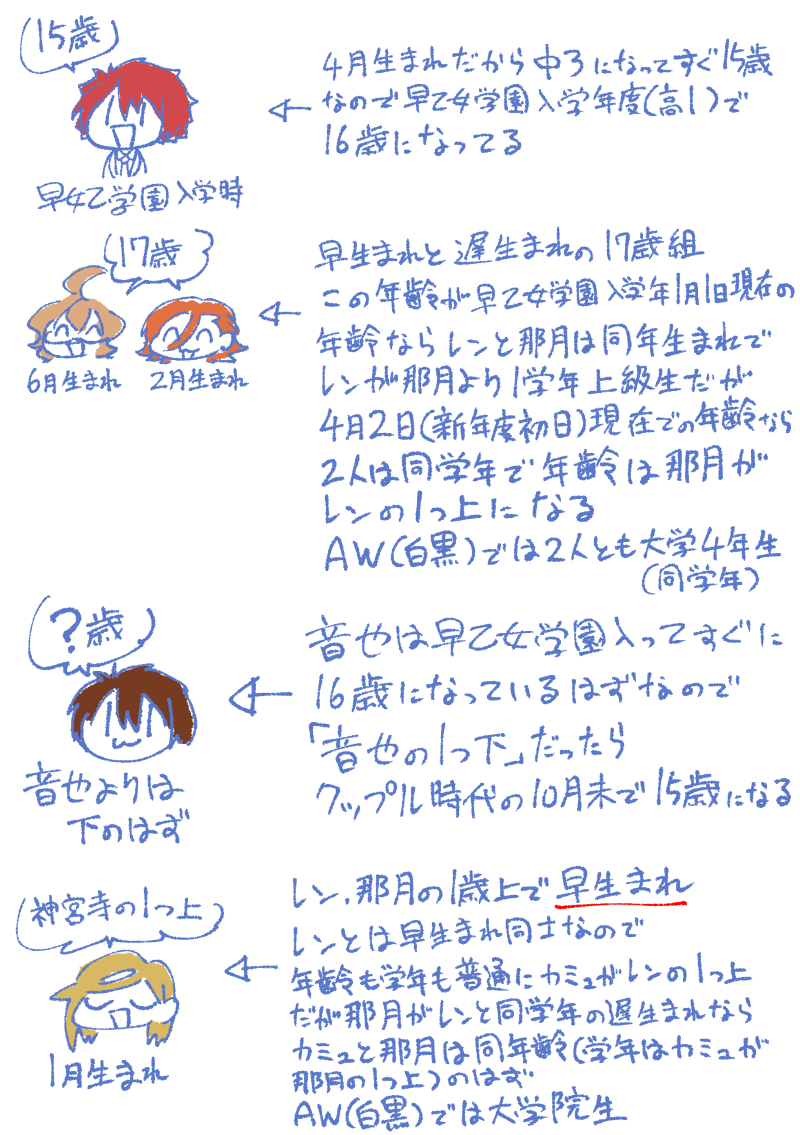 15歳
早乙女学園入学時
4月生まれだから中3になってすぐ15歳
なので早乙女学園入学年度(高1)で
16歳になってる
17歳
6月生まれ
2月生まれ
早生まれと遅生まれの17歳組
この年齢が早乙女学園入学年1月1日現在の
年齢ならレンと那月は同年生まれで
レンが那月より1学年上級生だが
4月2日(新年度初日)現在での年齢なら
2人は同学年で年齢は那月が
レンの1つ上になる
AW(白黒)では2人とも大学4年生
(同学年)
?歳
音也よりは
下のはず
音也は早乙女学園入ってすぐに
16歳になっているはずなので
「音也の1つ下」だったら
クップル時代の10月末で15歳になる
神宮寺の1つ上
1月生まれ
レン、那月の1歳上で早生まれ
レンとは早生まれ同士なので
年齢も学年も普通にカミュがレンの1つ上
だが那月がレンと同学年の遅生まれなら
カミュと那月は同年齢(学年はカミュが
那月の1つ上)のはず
AW(白黒)では大学院生